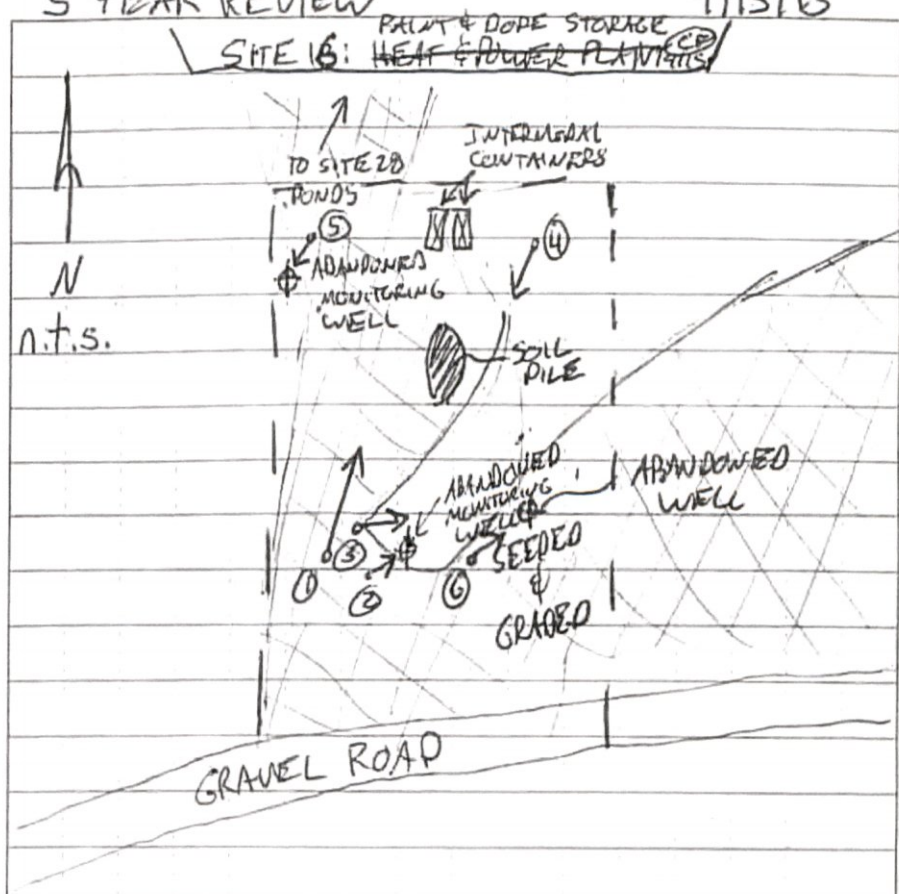 5 YEAR REVIEW
PAINT & DOPE STORAGE
SITE 16: HEAT & POWER PLANT
TO SITE 28
PONDS
INTERMODAL
CONTAINERS
5
4
ABANDONED
MONITORING
WELL
N
n.t.s.
SOIL
PILE
ABANDONED
MONITORING
WELL
ABANDONED
WELL
3
1
2
6
SEEDED
&
GRADED
GRAVEL ROAD